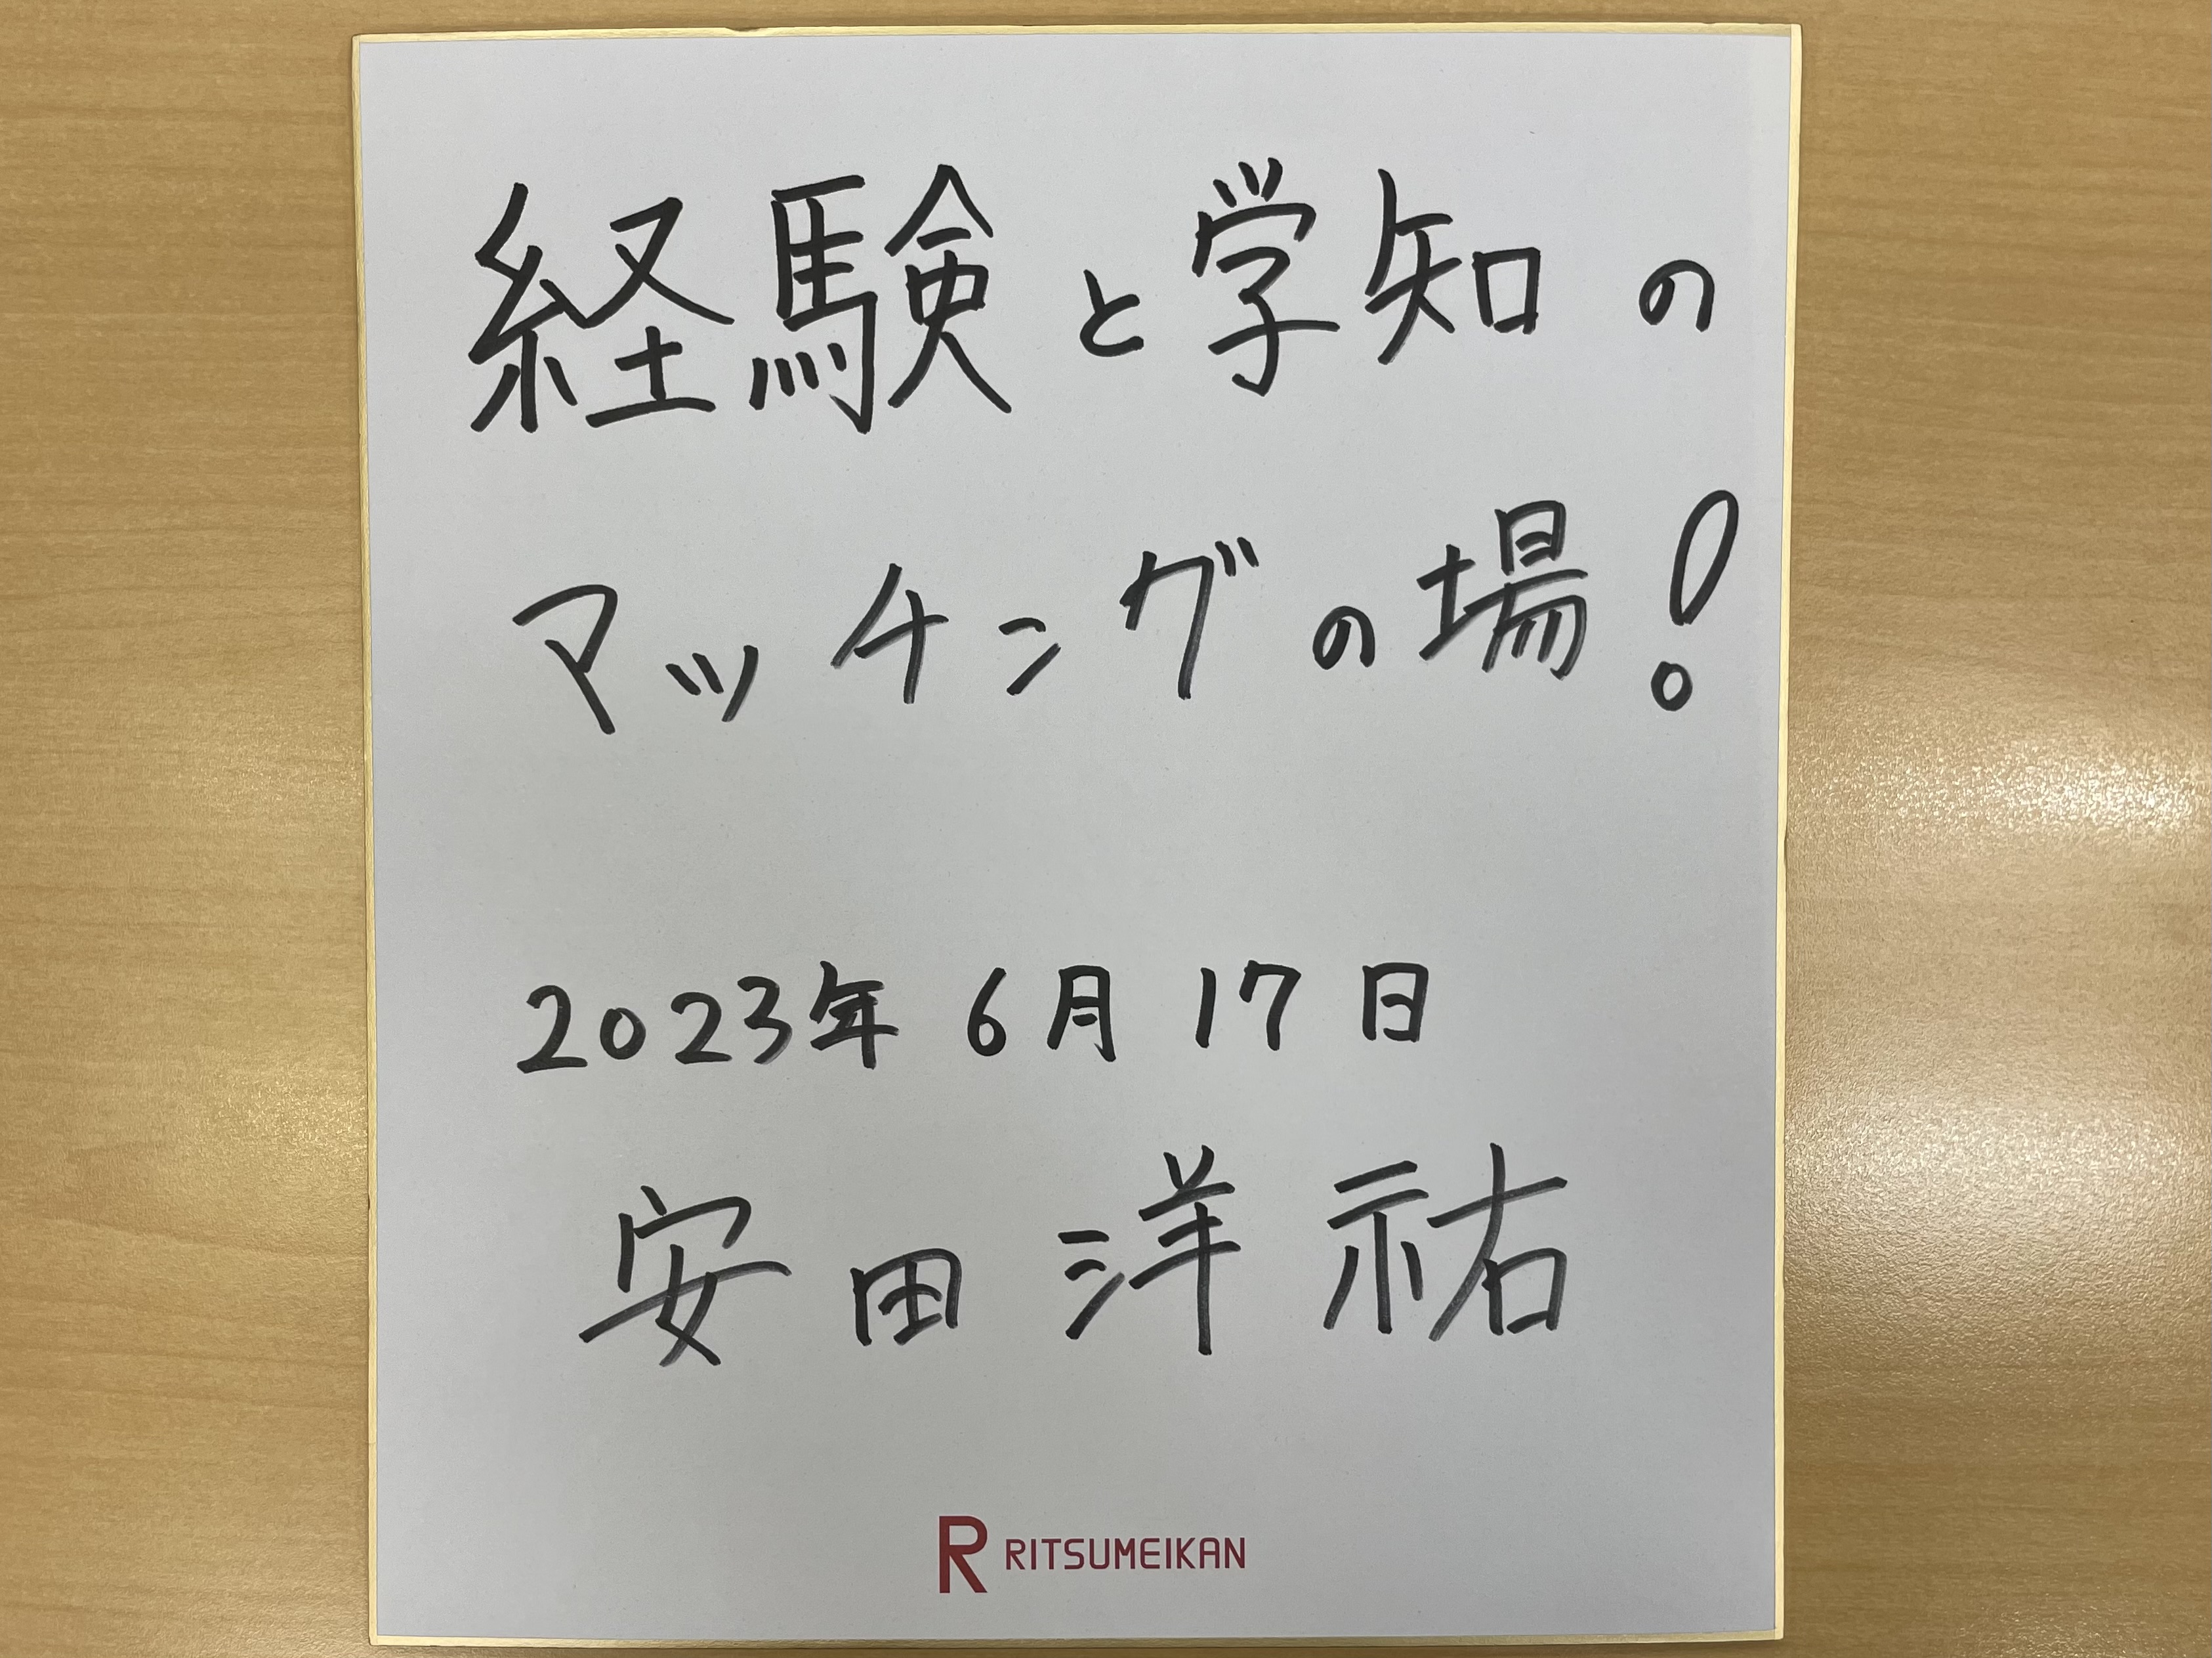 経験と学知の
マッチングの場！
2023年 6月 17日
安田 洋祐
R RITSUMEIKAN